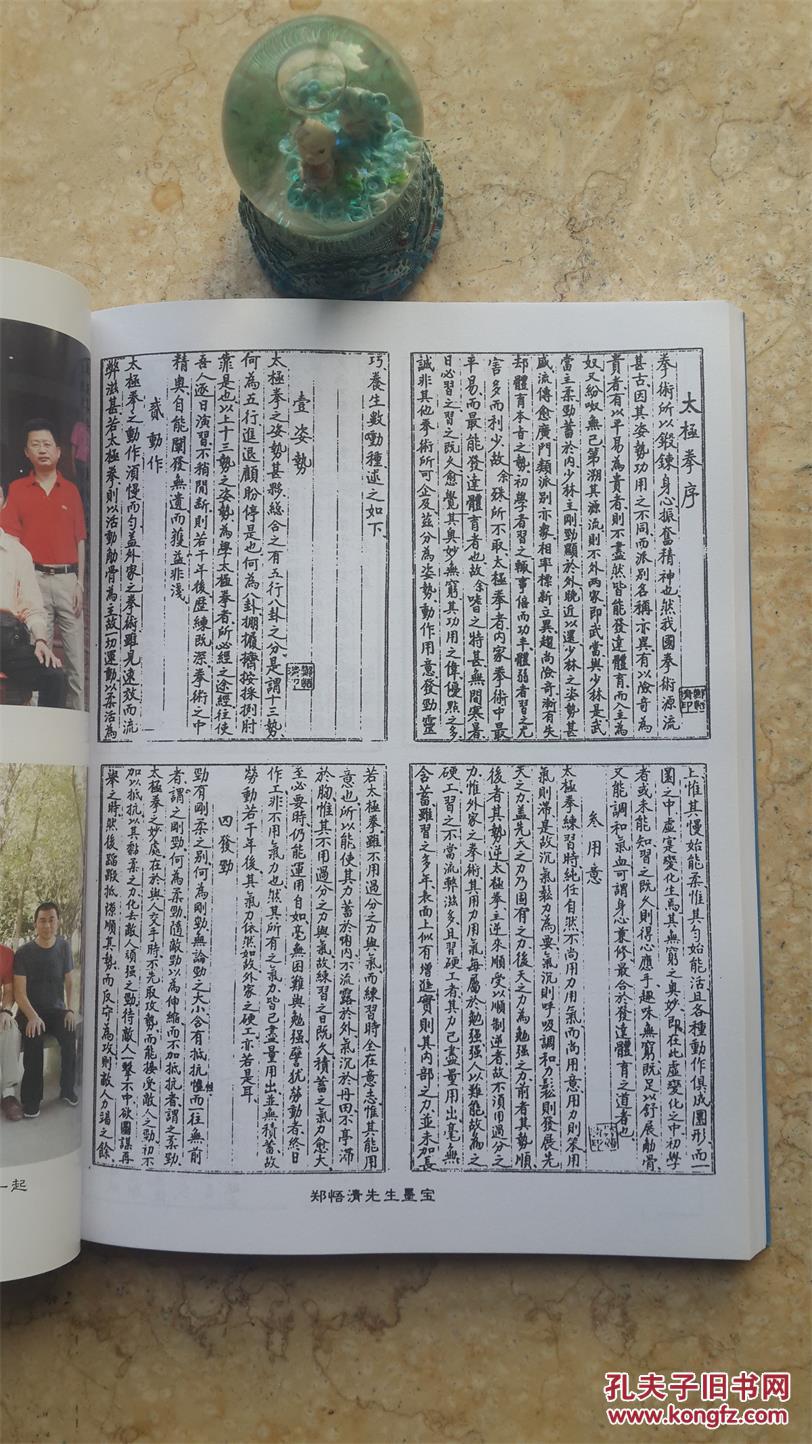 太極拳序
拳術所以鍛鍊身心振奮精神也然我國拳術源流
甚古因其姿勢功用之不同而派別名稱亦異有以險奇為
貴者有以平易為貴者則不盡然皆能發達體育而入主為
奴又紛呶無已第溯其源流則不外兩家即武當與少林是武
當主柔勁蓄於內少林主剛勁顯於外晚近以還少林之姿勢甚
盛流傳愈廣門類派別亦家相率標新立異趨尚險奇漸有失
却體育本旨之勢初學者習之輒事倍而功半體弱者習之尤
害多而利少故余殊所不取太極拳者內家拳術中最
平易而最能發達體育者也故余嗜之特甚無間寒暑
日必習之習之既久愈覺其奧妙無窮其功用之偉優點之多
誠非其他拳術所可企及茲分為姿勢動作用意發勁靈
巧養生數嘞種述之如下
壹姿勢
太極拳之姿勢甚夥綜合之有五行八卦之分是謂十三勢
何為五行進退顧盼停是也何為八卦掤攦擠按採挒肘
靠是也以上十三勢之姿勢為學太極拳者所必經之途經往使
吾人逐日演習不稍間斷則若干年後歷練既深拳術之中
精奧自能闡發無遺而獲益非淺
貳動作
太極拳之動作須慢而勻蓋外家之拳術雖見速效而流
弊滋甚若太極拳則以活動觔骨為主故一切運動以柔活為
上惟其慢始能柔惟其勻始能活且各種動作俱成圓形而一
圓之中虛寔變化生焉其無窮之奧妙即在此虛變化之中初學
者或未能知習之既久則得心應手趣味無窮既足以舒展觔骨
又能調和氣血可謂身心兼修最合於發達體育之道者也
叄用意
太極拳練習時純任自然不尚用力用氣而尚用意用力則笨用
氣則滞是故沉氣鬆力為要氣沉則呼吸調和力鬆則發展先
天之力蓋先天之力乃固有之力後天之力為勉强之力前者其勢順
後者其勢逆太極拳主逆來順受以順制逆者故不須用過分之
力惟外家之拳術其用力用氣每屬於勉强强人以難能故為之
硬工習之不當流弊滋多且習硬工者其力已盡量用出毫無
含蓄雖習之多年表面上似有增進實則其內部之力並未加長
若太極拳雖不用過分之力與氣而練習時全在意志惟其能用
意也所以能使其力蓄於內不流露於外氣沉於丹田不亭滞
於胸惟其不用過分之力與氣故練習之日既久積蓄之氣力愈大
至必要時仍能運用自如毫無困難與勉强譬犹勞動者終日
作工非不用氣力也然其所有之氣力皆已盡量用出並無積蓄故
勞動若干年後其氣力依然如故外家之硬工亦若是耳
四發勁
勁有剛柔之别何為剛勁無論勁之大小含有抵抗性而一往無前
者謂之剛勁何為柔勁隨敵勁以為伸縮而不加抵抗者謂之柔勁
太極拳之妙處在於與人交手時不先取攻勢而能接受敵人之勁初不
加以抵抗以其黏柔之力化去敵人頑强之勁待敵人一擊不中欲圖謀再
舉之時然後蹈瑕抵隙順其勢而反守為攻則敵人力竭之餘
郑悟清先生墨宝
一起
孔夫子旧书网
www.kongfz.com